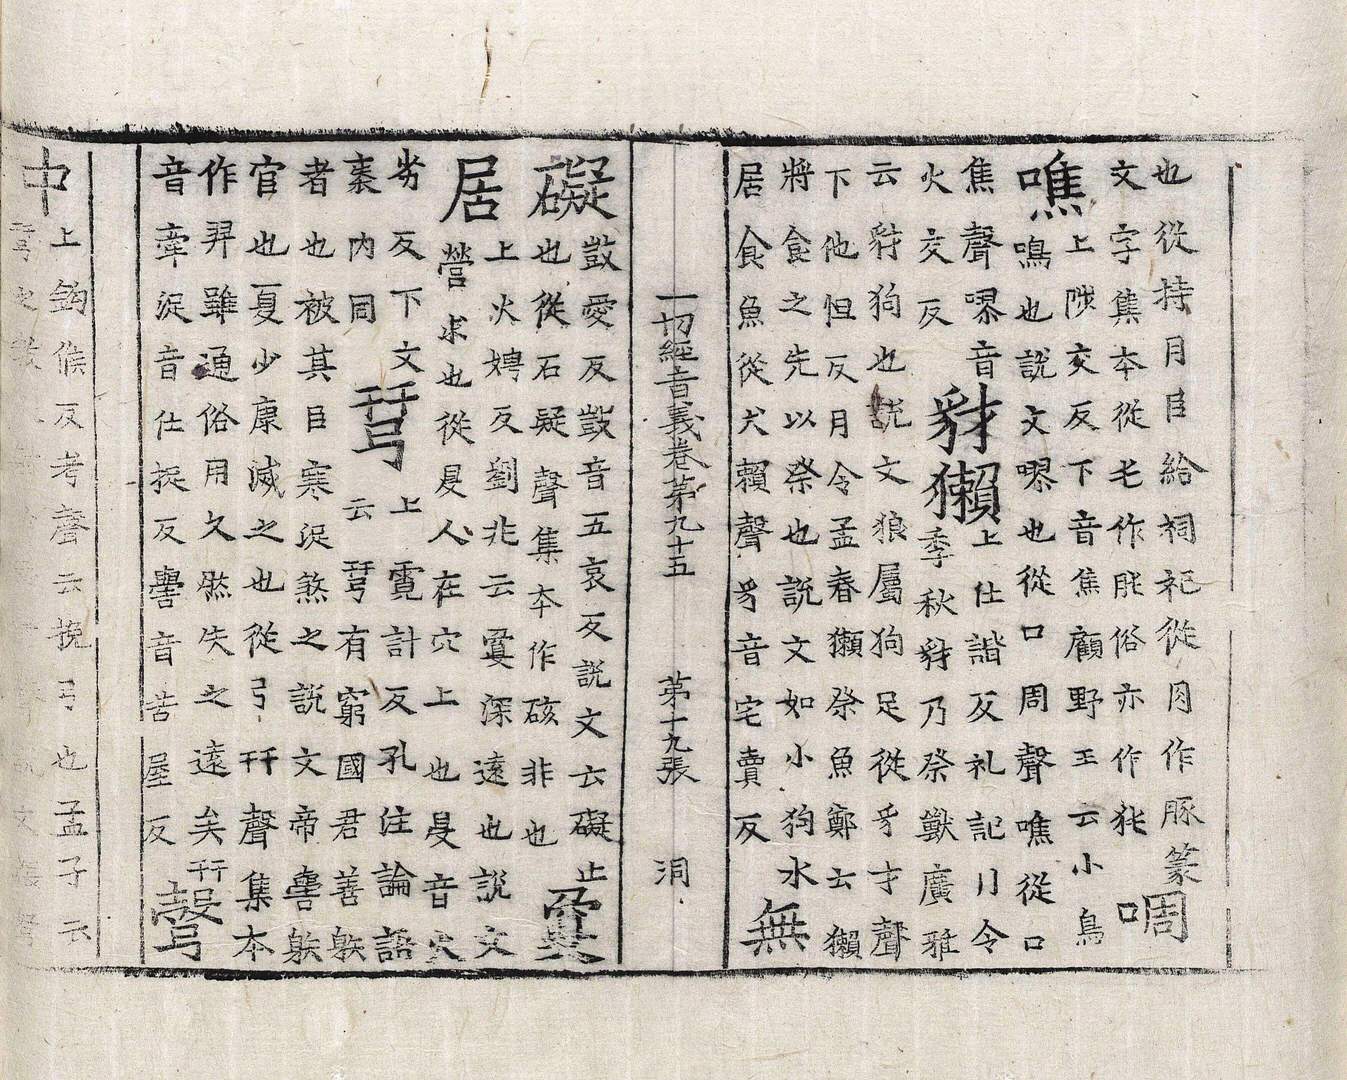 也從持月㠯給祠祀從肉作豚篆
文字集本從屯作肫俗亦作㹠啁
噍上陟交反下音焦顧野王云小鳥
鳴也說文嘐也從口周聲噍從口
焦聲嘐音
火交反
豺獺上仕諧反礼記月令
季秋豺乃祭獸廣雅
云豺狗也說文狼屬狗足從豸才聲
下他怛反月令孟春獺祭魚鄭云獺
將食之先以祭也說文如小狗水
居食魚從犬賴聲豸音宅賣反無
一切經音義卷第九十五 第十九張 洞
礙敳愛反敳音五哀反說文云礙止
也從石疑聲集本作硋非也夐
居上火娉反劉兆云夐深遠也說文
營求也從𥄎人在穴上也𥄎音火
劣反下文
裹內同
𢏗上霓計反孔注論語
云𢏗有窮國君善躲
者也被其臣寒浞煞之說文帝嚳躲
官也夏少康滅之也從弓幵聲集本
作羿雖通俗用久然失之遠矣幵
音牽浞音仕捉反嚳音苦屋反彀
中上鈎候反考聲云挽弓也孟子云
𢏗之教